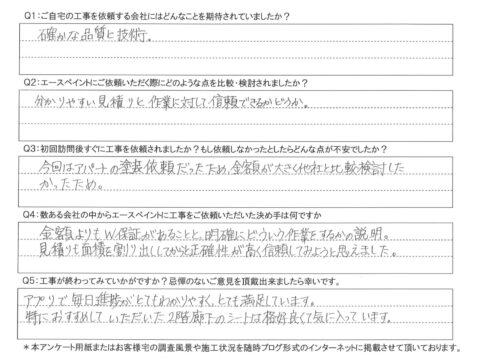 Q1：ご自宅の工事を依頼する会社にはどんなことを期待されていましたか？
確かな品質と技術。
Q2：エースペイントにご依頼いただく際にどのような点を比較・検討されましたか？
分かりやすい見積りと作業に対して信頼できるかどうか。
Q3：初回訪問後すぐに工事を依頼されましたか？もし依頼しなかったとしたらどんな点が不安でしたか？
今回はアパートの塗装依頼だったため、金額が大きく他社と比較検討した
かったため。
Q4：数ある会社の中からエースペイントに工事をご依頼いただいた決め手は何ですか
金額よりもW保証があることと、明確にどういう作業をするかの説明。
見積りも面積を割り出してから正確性が高く信頼してみようと思えました。
Q5：工事が終わってみていかがですか？忌憚のないご意見を頂戴出来ましたら幸いです。
アプリで毎日進捗がとてもわかりやすく、とても満足しています。
特におすすめしていただいた2階廊下のシートは格好良くて気に入っています。
＊本アンケート用紙またはお客様宅の調査風景や施工状況を随時ブログ形式のインターネットに掲載させて頂いております。